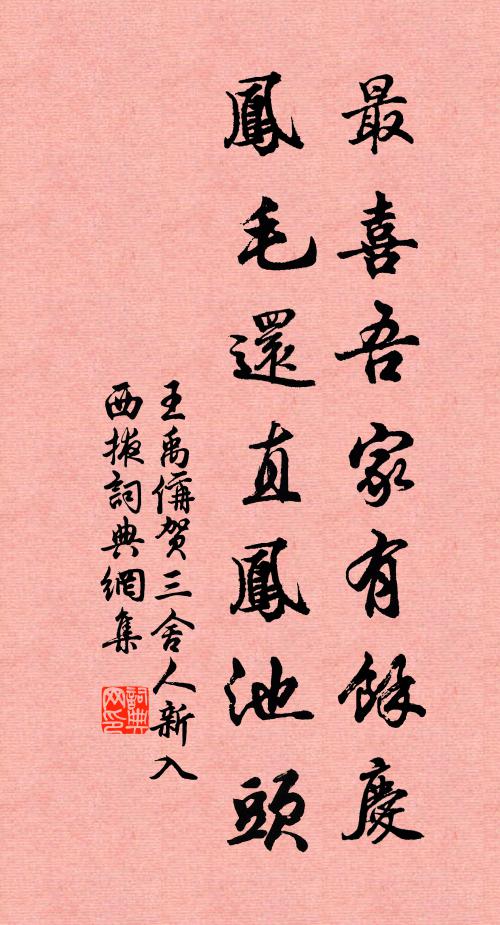 最喜吾家有餘慶
鳳毛還直鳳池頭
王禹偁賀三舍人新入
西掖詞典網集
詞典
网印